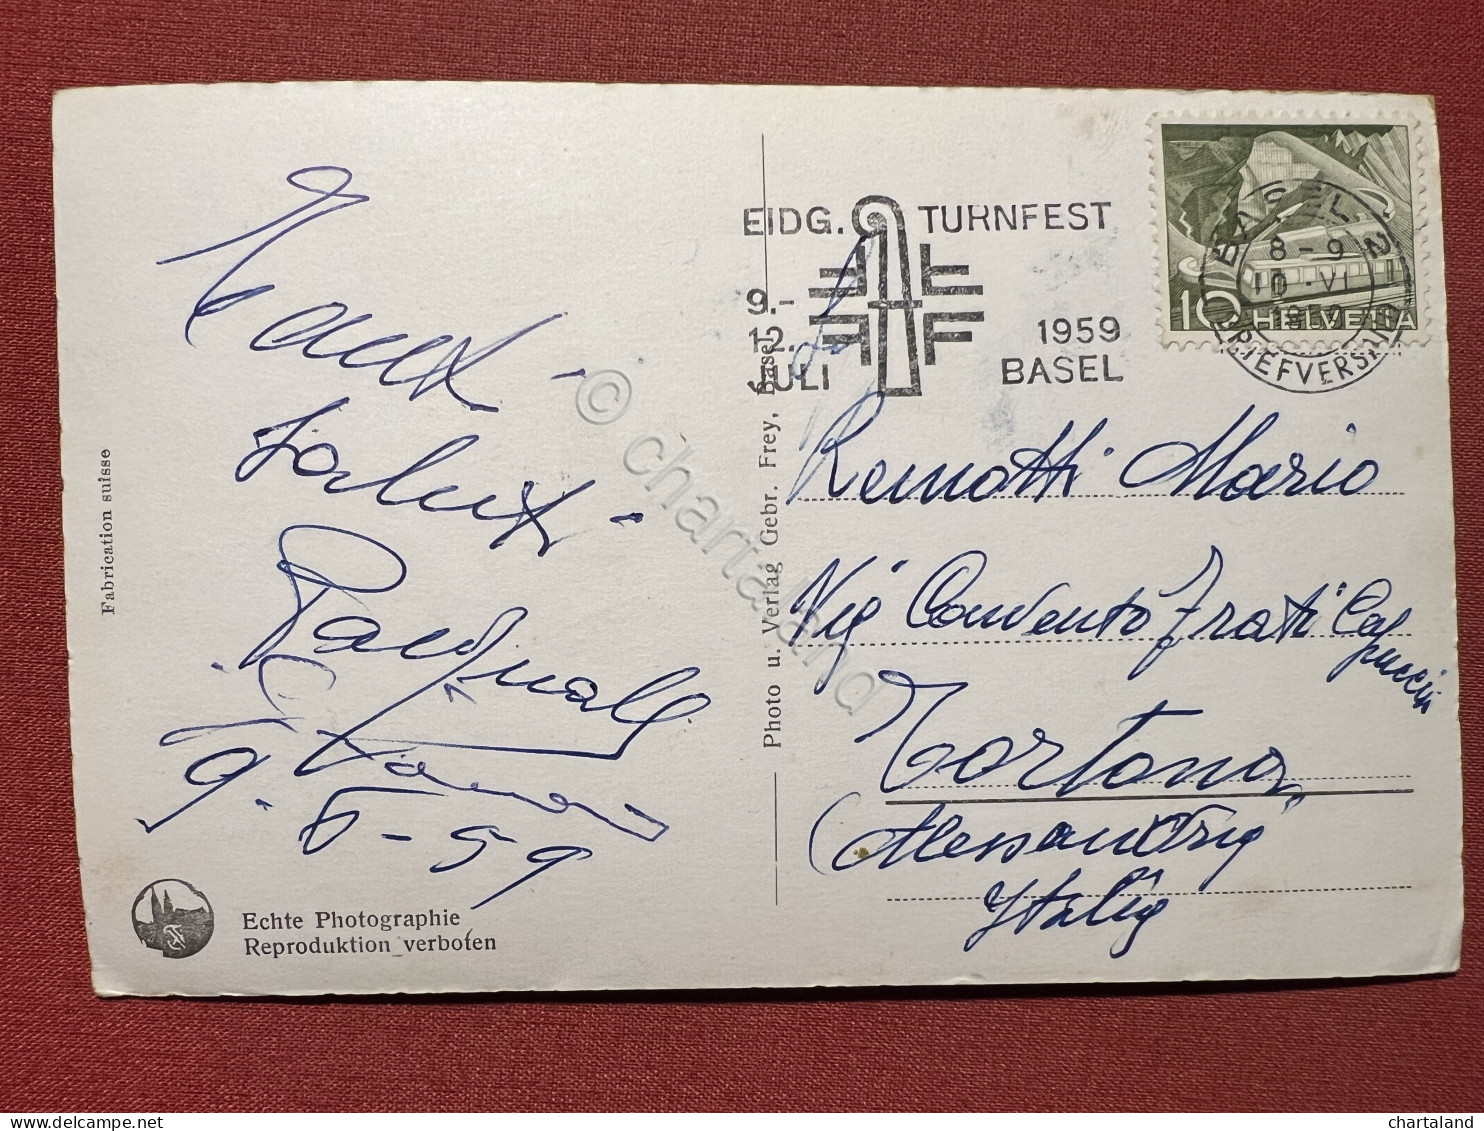 EIDG. TURNFEST
9.-
12.
JULI
1959
BASEL
BASEL 2
8-9
10.VI
1959
BRIEFVERSAND
10 HELVETIA
Saluti
Pasquale
9.6-59
Remotti Mario
Via Convento Frati Cappuccini
Tortona
(Alessandria
Italia
Fabrication suisse
Photo u. Verlag Gebr. Frey, Basel
Echte Photographie
Reproduktion verboten
© chartaland
chartaland
delcampe.net